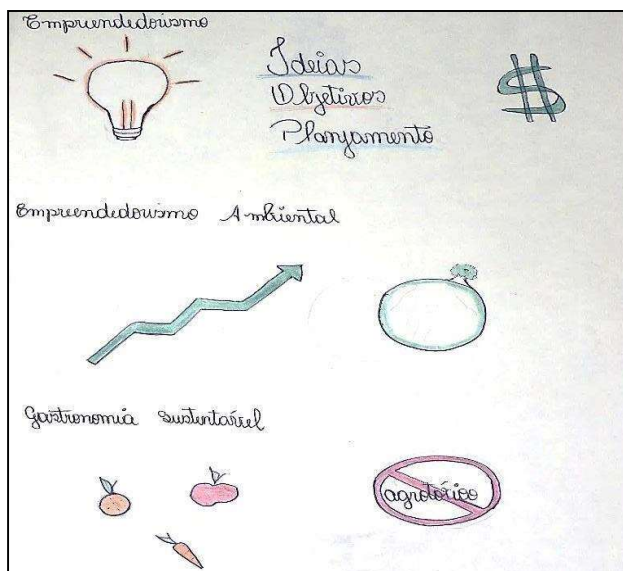 Empreendedorismo
Ideias
Objetivos
Planejamento
$
Empreendedorismo Ambiental
Gastronomia Sustentável
agrotóxico